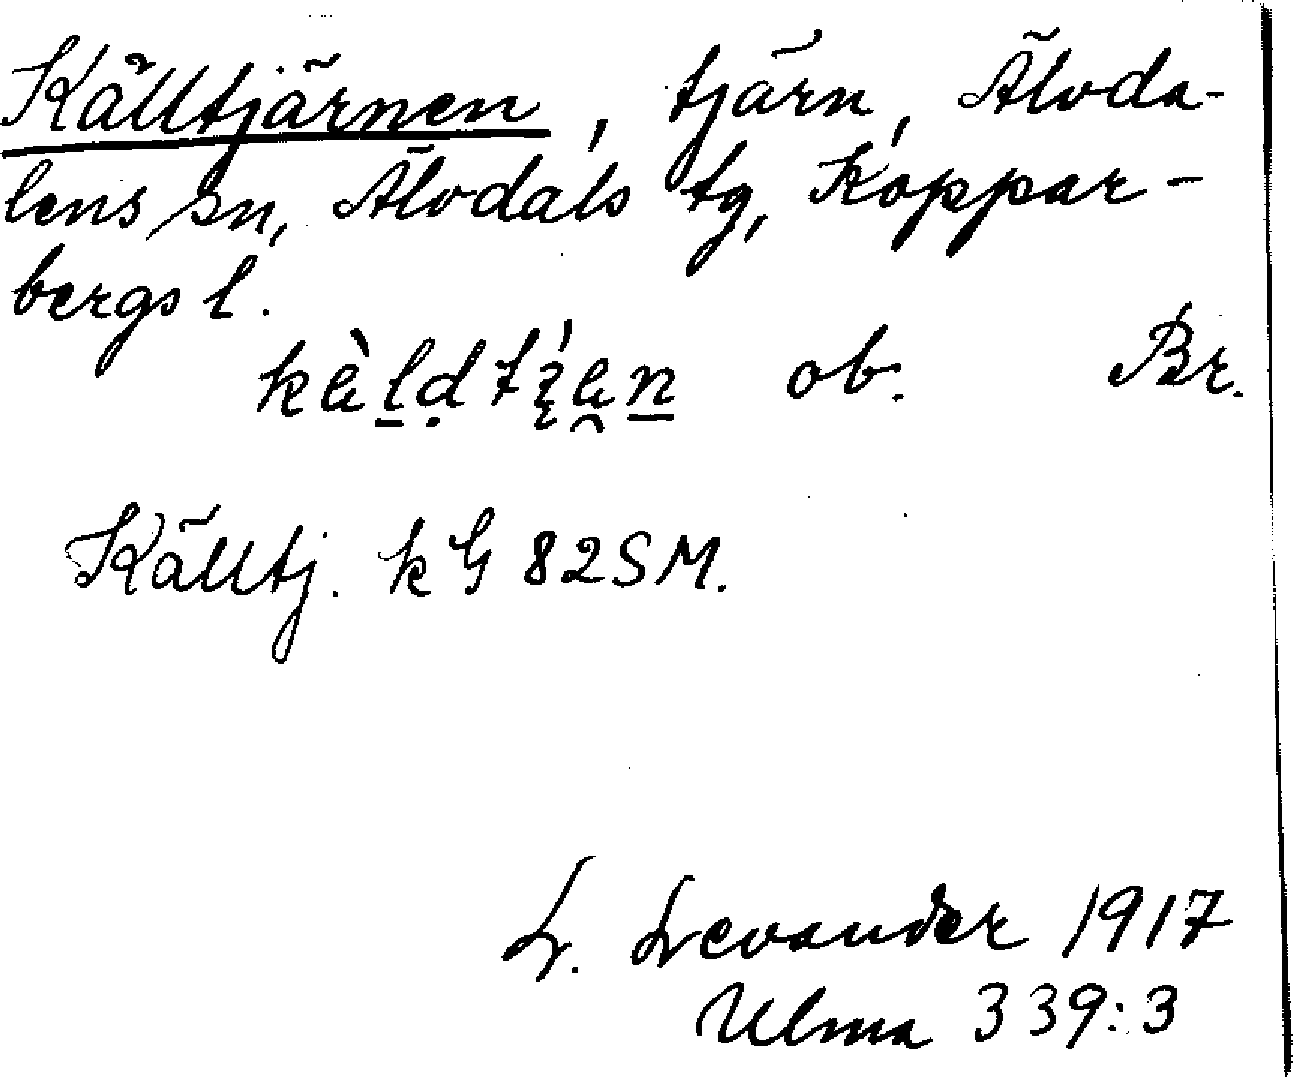 Källtjärnen, tjärn, Älvda-
lens sn, Älvdals tg, Koppar-
bergs l.
ob. Br.
Källtj. k G 82 SM.
L. Levander 1917
Ulma 339:3